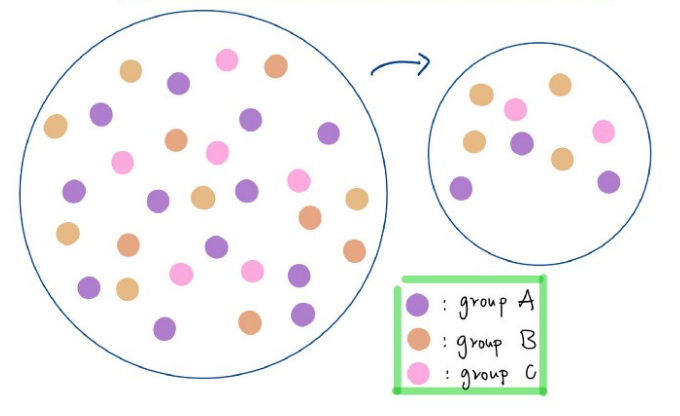 : group A
: group B
: group C